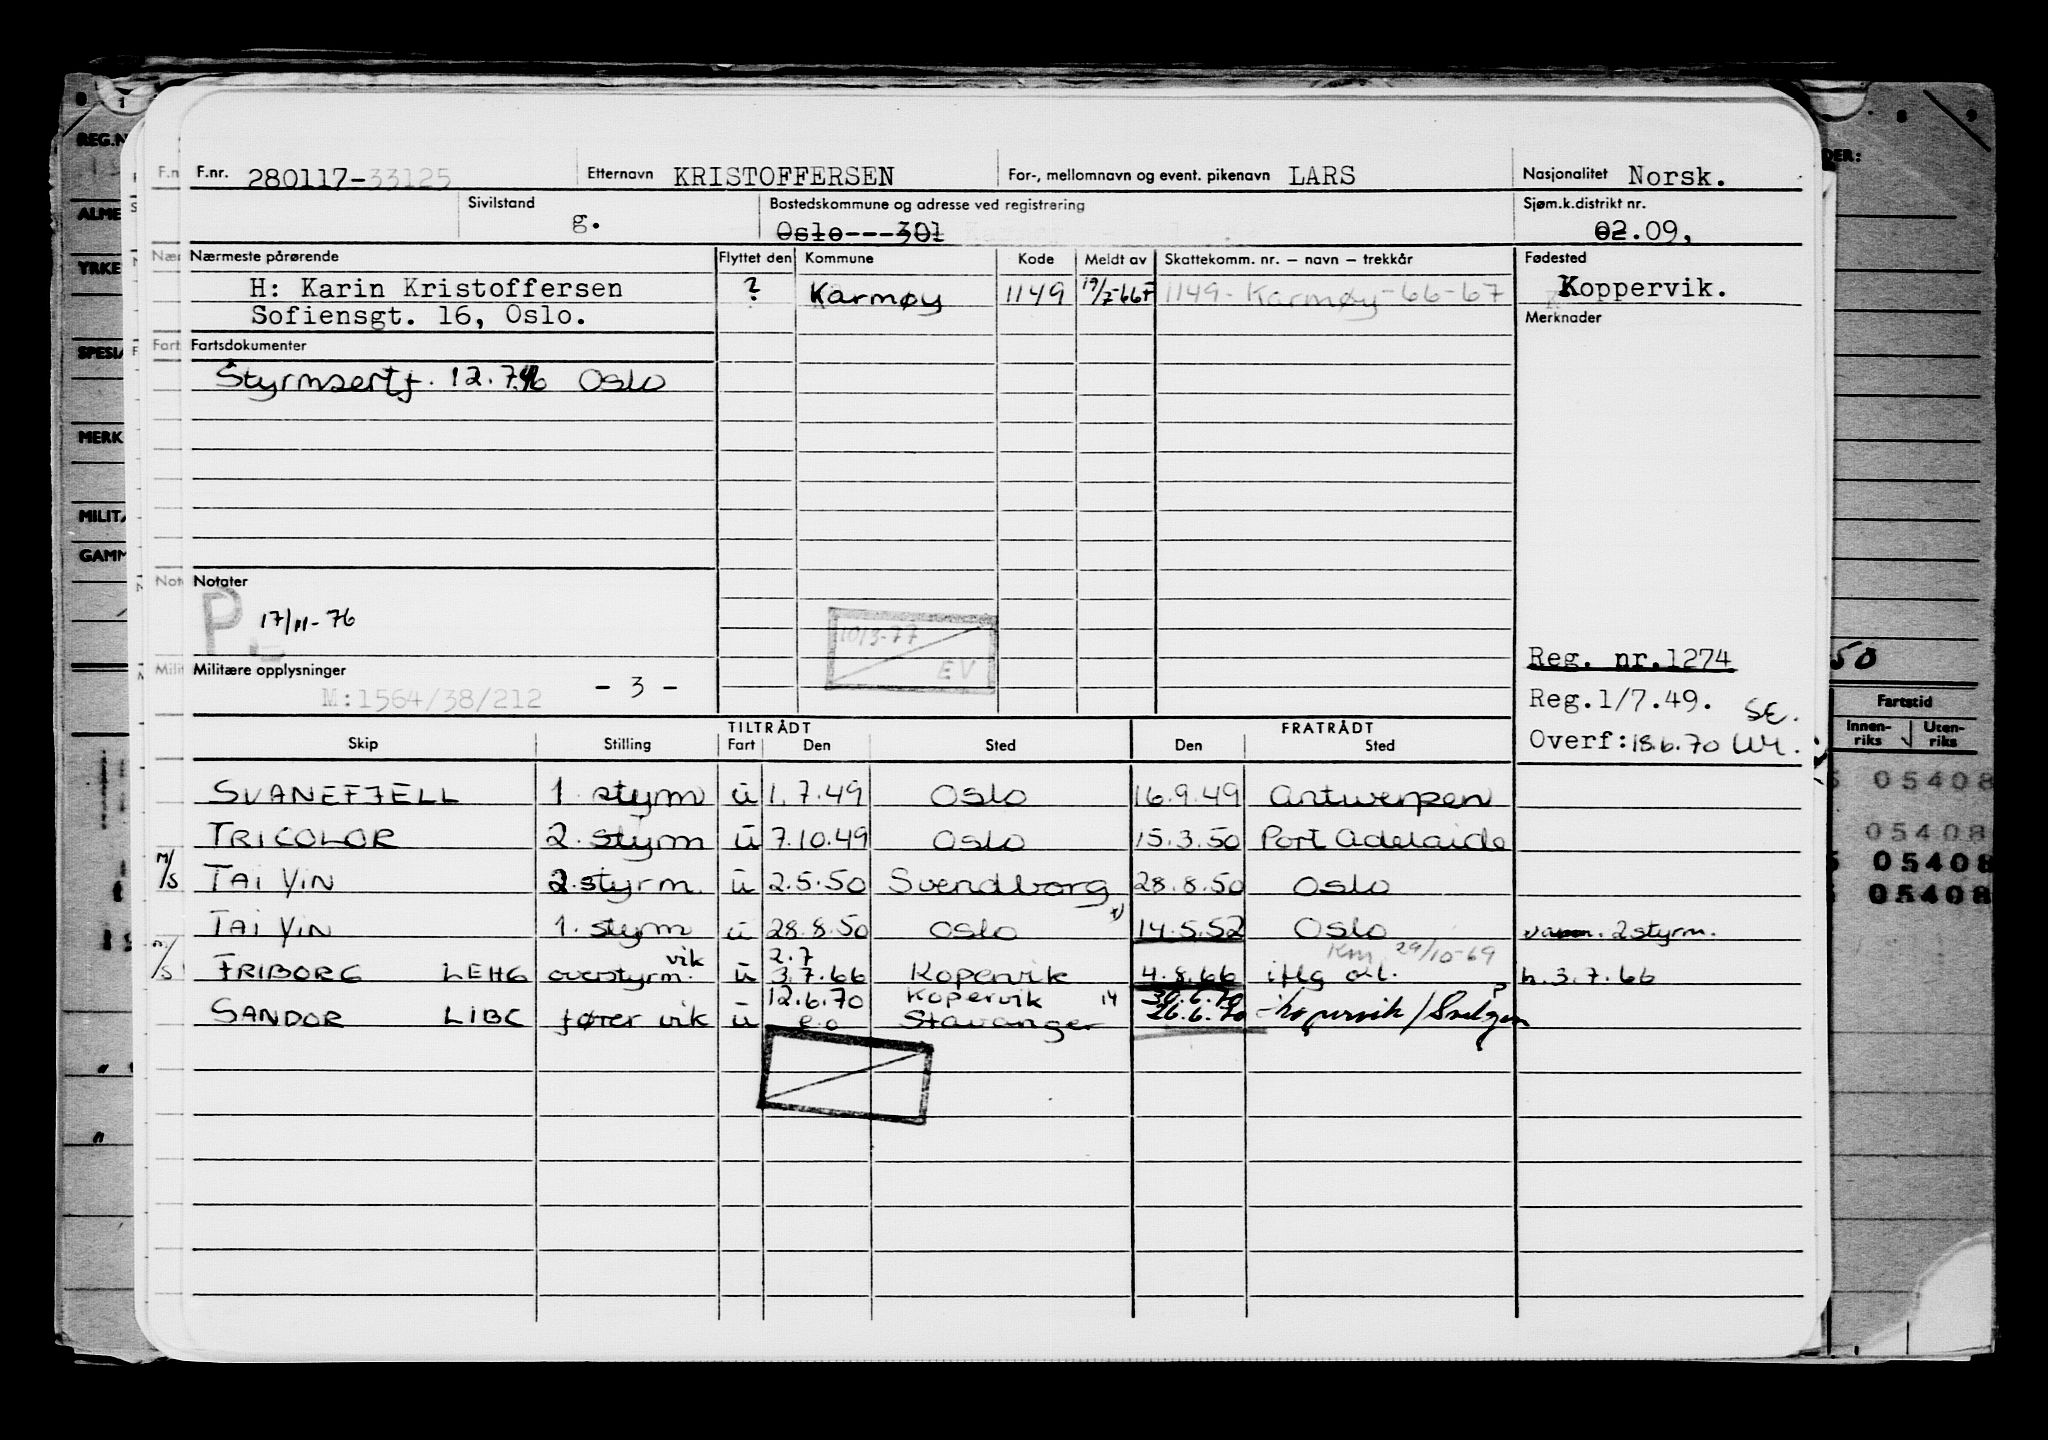 F.nr. 280117-33125 Etternavn KRISTOFFERSEN For-, mellomnavn og event. pikenavn LARS Nasjonalitet Norsk.
Sivilstand g. Bostedskommune og adresse ved registrering Oslo---301 Sjøm.k.distrikt nr. 02.09,
Nærmeste pårørende Flyttet den Kommune Kode Meldt av Skattekomm. nr. – navn – trekkår Fødested
H: Karin Kristoffersen ? Karmøy 1149 19/7-66F 1149- Karmøy-66-67 Koppervik.
Sofiensgt. 16, Oslo.
Merknader
Fartsdokumenter
Styrmsertf. 12.7.46 Oslo
Notater
P 17/11-76
1013-77
EV
Reg. nr.1274
Militære opplysninger
M:1564/38/212 - 3 -
Reg.1/7.49. SE.
Overf:18.6.70
TILTRÅDT FRATRÅDT
Skip Stilling Fart Den Sted Den Sted
SVANEFJELL 1. styrm u 1.7.49 Oslo 16.9.49 Antwerpen
TRICOLOR 2. styrm u 7.10.49 Oslo 15.3.50 Port Adelaide
M/S TAI YIN 2. styrm. u 2.5.50 Svendborg 28.8.50 Oslo
TAI YIN 1. styrm u 28.8.50 Oslo x) 14.5.52 Oslo 2 styrm.
Km 29/10-69
M/S FRIBORG LEHG overstyrm. vik u 2.7 3.7.66 Kopervik 4.8.66 iflg h. 3.7.66
SANDOR LIBC fører vik u 12.6.70 Kopervik 14 30.6.70
e.o Stavanger 26.6.70 Kopervik /
REG.N
ALME
YRKE
SPESIA
MERK
MILITÆ
GAMM
DER:
8 9
50
Fartstid
Innen-riks Uten-riks
05408
05408
05408
05408